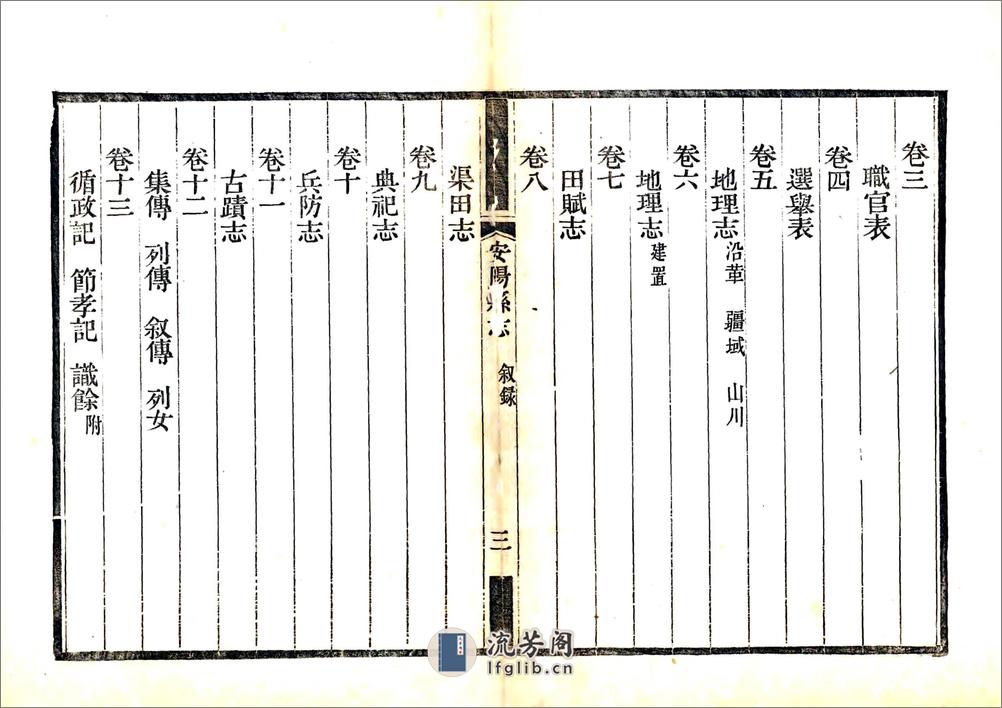 卷三
職官表
卷四
選舉表
卷五
地理志 沿革 疆域 山川
卷六
地理志 建置
卷七
田賦志
卷八
安陽縣志 叙録 三
渠田志
卷九
典祀志
卷十
兵防志
卷十一
古蹟志
卷十二
集傳 列傳 叙傳 列女
卷十三
循政記 節孝記 識餘 附
流芳阁
lfglib.cn